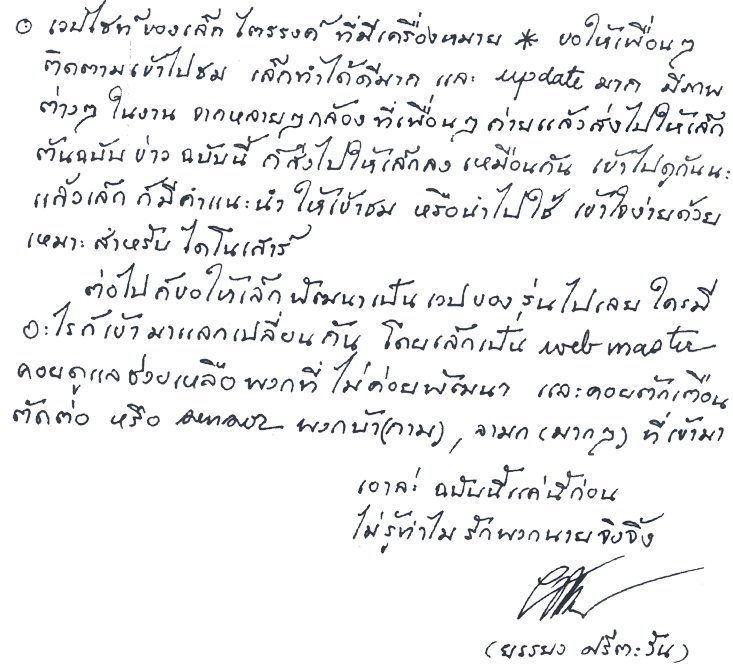 ๏ เวปไซท์ของเล็ก ไตรรงค์ ที่มีเครื่องหมาย * ขอให้เพื่อนๆ
ติดตามเข้าไปชม เล็กทำได้ดีมาก และ update มาก มีภาพ
ต่างๆ ในงาน จากหลายๆกล้อง ที่เพื่อนๆ ถ่ายแล้วส่งไปให้เล็ก
ต้นฉบับ ข่าว ฉบับนี้ ก็ส่งไปให้เล็กลง เหมือนกัน เข้าไปดูกันนะ
แล้วเล็ก ก็มีคำแนะนำ ให้เข้าชม หรือนำไปใช้ เข้าใจง่ายด้วย
เหมาะสำหรับ ไดโนเสาร์
ต่อไป ก็ขอให้เล็ก พัฒนาเป็น เวปของ รุ่นไปเลย ใครมี
อะไรก็เข้ามาแลกเปลี่ยนกัน โดยเล็กเป็น web master
คอยดูแลช่วยเหลือ พวกที่ ไม่ค่อยพัฒนา และคอยตักเตือน
ตัดต่อ หรือ พวกบ้า(กาม), ลามก (มากๆ) ที่เข้ามา
เอาล่ะ ฉบับนี้แค่นี้ก่อน
ไม่รู้ทำไม รักพวกนายจังจิ้ง
(ยรรยง ศรีตะวัน)